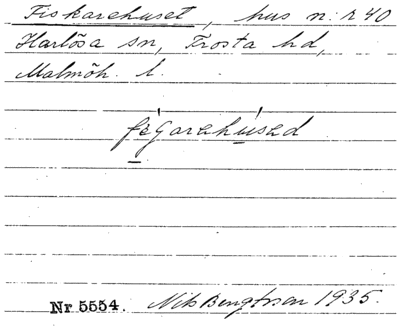 Fiskarehuset, hus n:r 40
Harlösa sn, Frosta hd,
Malmöh. l.
fęgarehused
Nr 5554. Nils Bengtsson 1935.